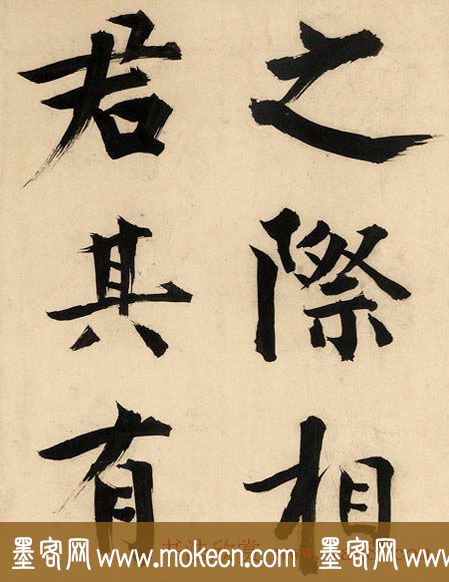 之際相
君其有
墨客网www.mokecn.com墨客网www